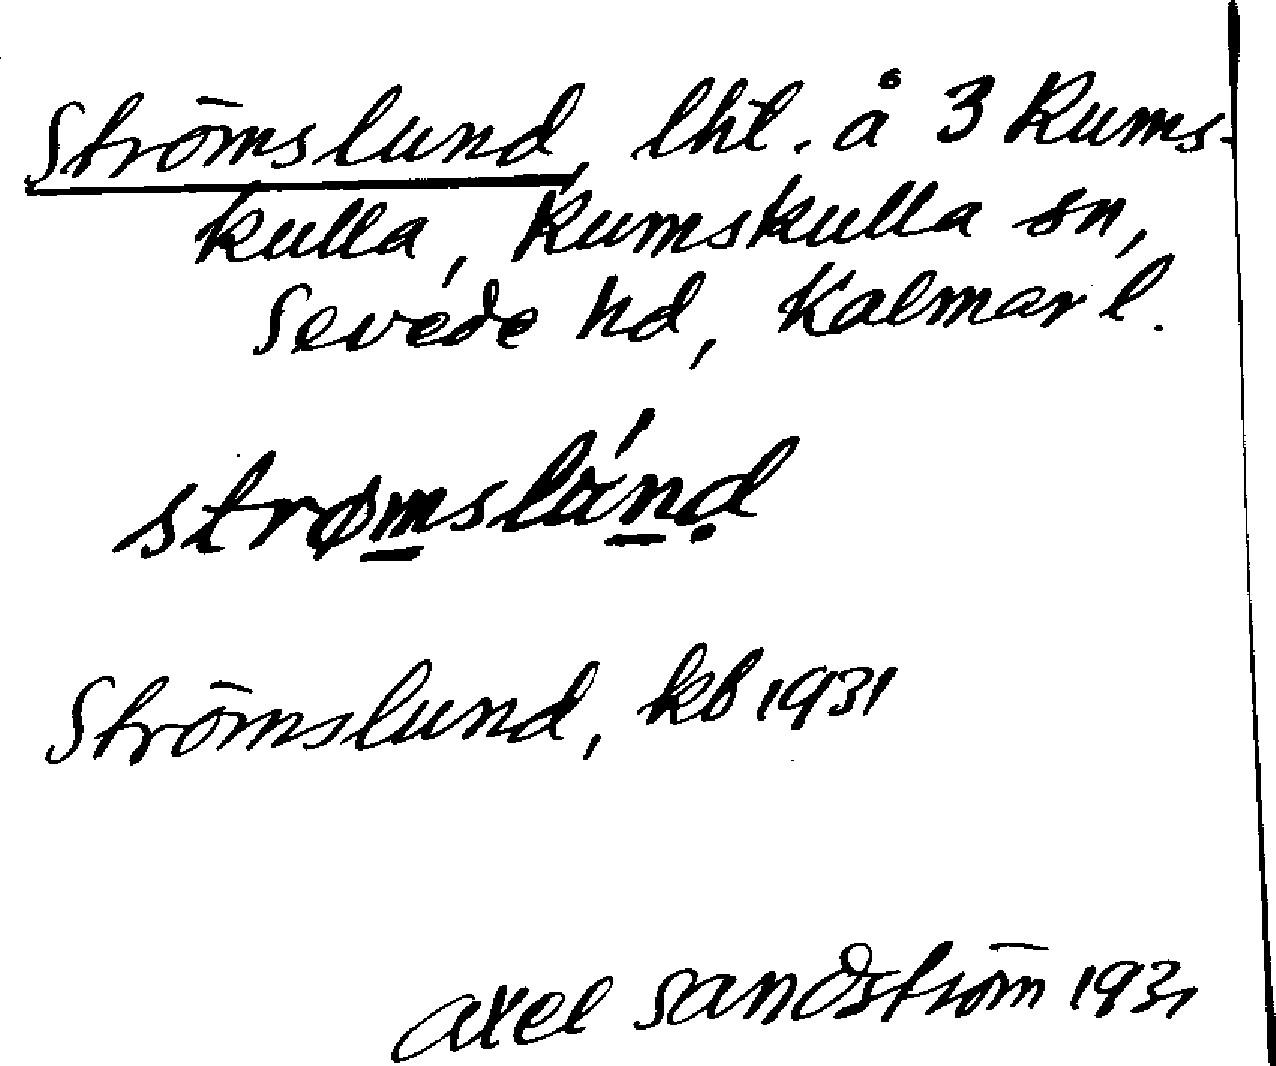 Strömslund, lht. å 3 Rums-
kulla, Rumskulla sn,
Sevede hd, Kalmar l.
strømslúnd
Strömslund, kb 1931
Axel Sandström 1931